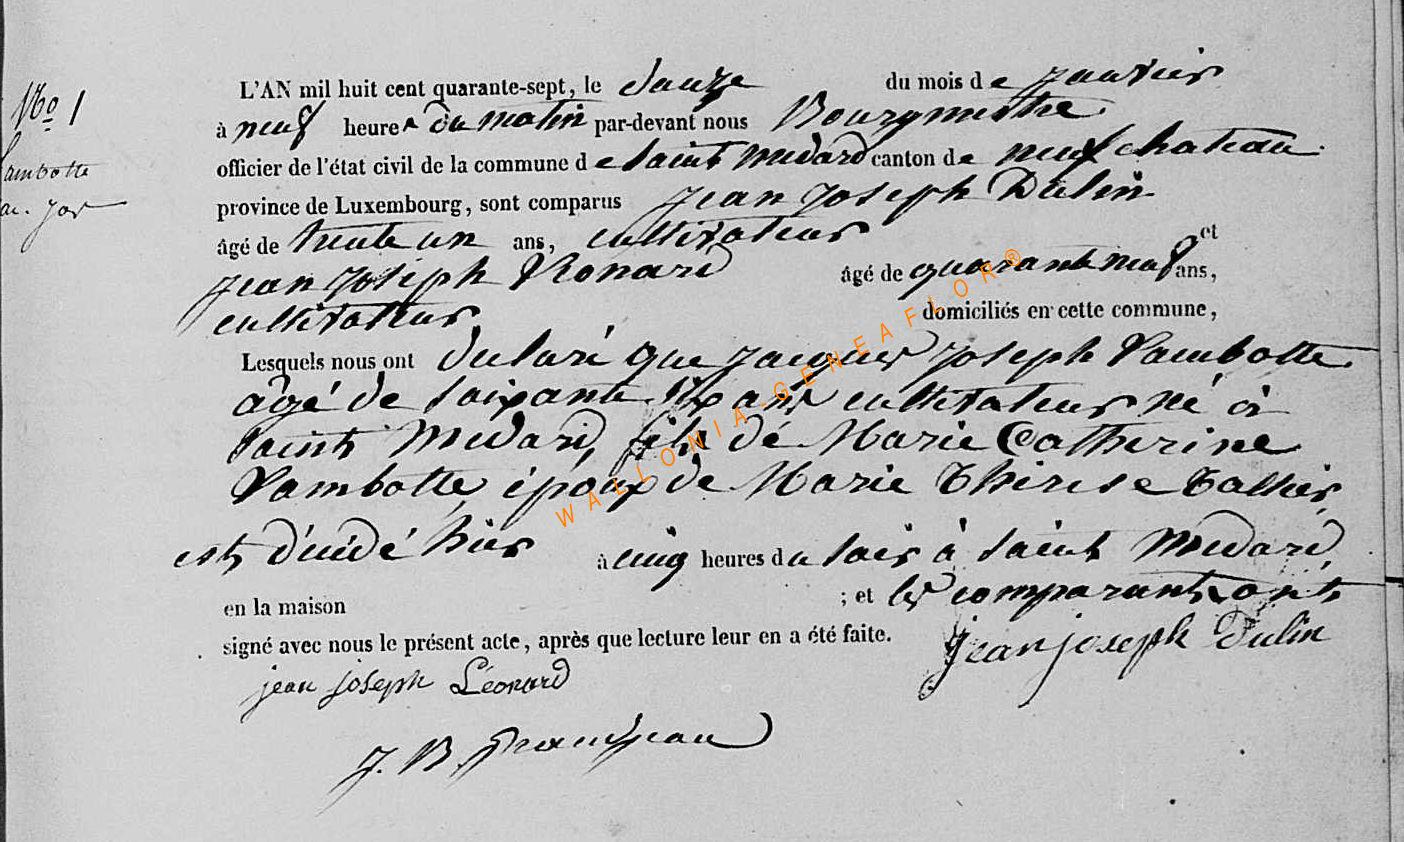 No 1
Lambotte
jac. jos
L'AN mil huit cent quarante-sept, le douze du mois de janvier
à neuf heures du matin par-devant nous Bourgmestre
officier de l'état civil de la commune de Saint Medard canton de neufchateau
province de Luxembourg, sont comparus Jean Joseph Dulin
âgé de trente un ans, cultivateur et
Jean Joseph Léonard âgé de quarante neuf ans,
cultivateur domiciliés en cette commune,
Lesquels nous ont declaré que Jacques Joseph Lambotte
âgé de soixante dix ans cultivateur né à
Saint Medard, fils de Marie Catherine
Lambotte, époux de Marie Thérese
est décédé hier à cinq heures du soir à Saint Medard
en la maison ; et les comparants ont
signé avec nous le présent acte, après que lecture leur en a été faite.
jean joseph Dulin
jean joseph Léonard
J. B.
WALLONIA-GENEAFLOR®